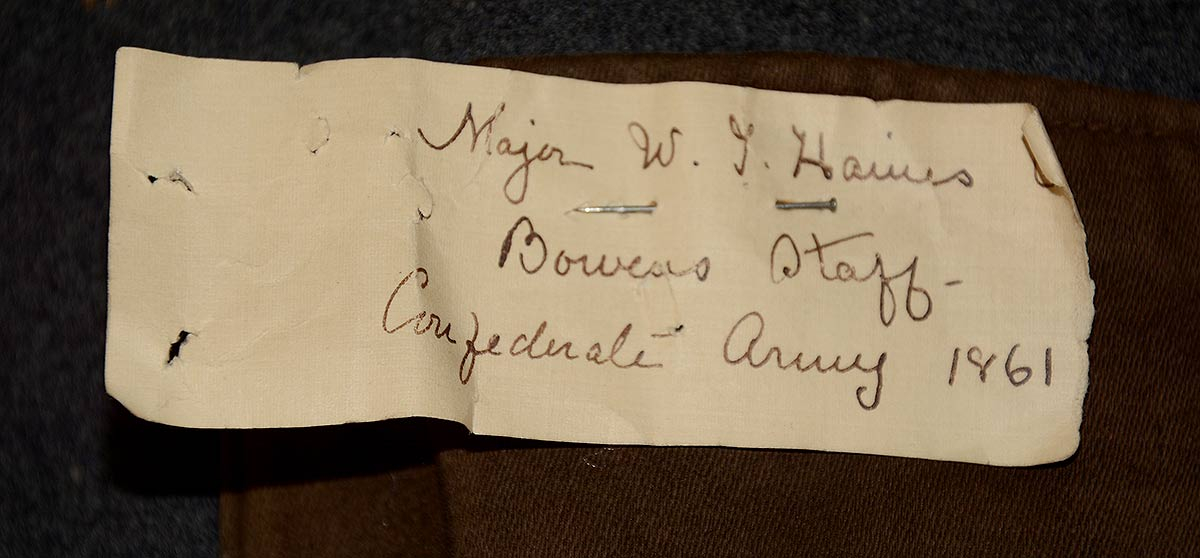 Major W. T. Haines
Bowens Staff-
Confederate Army 1861